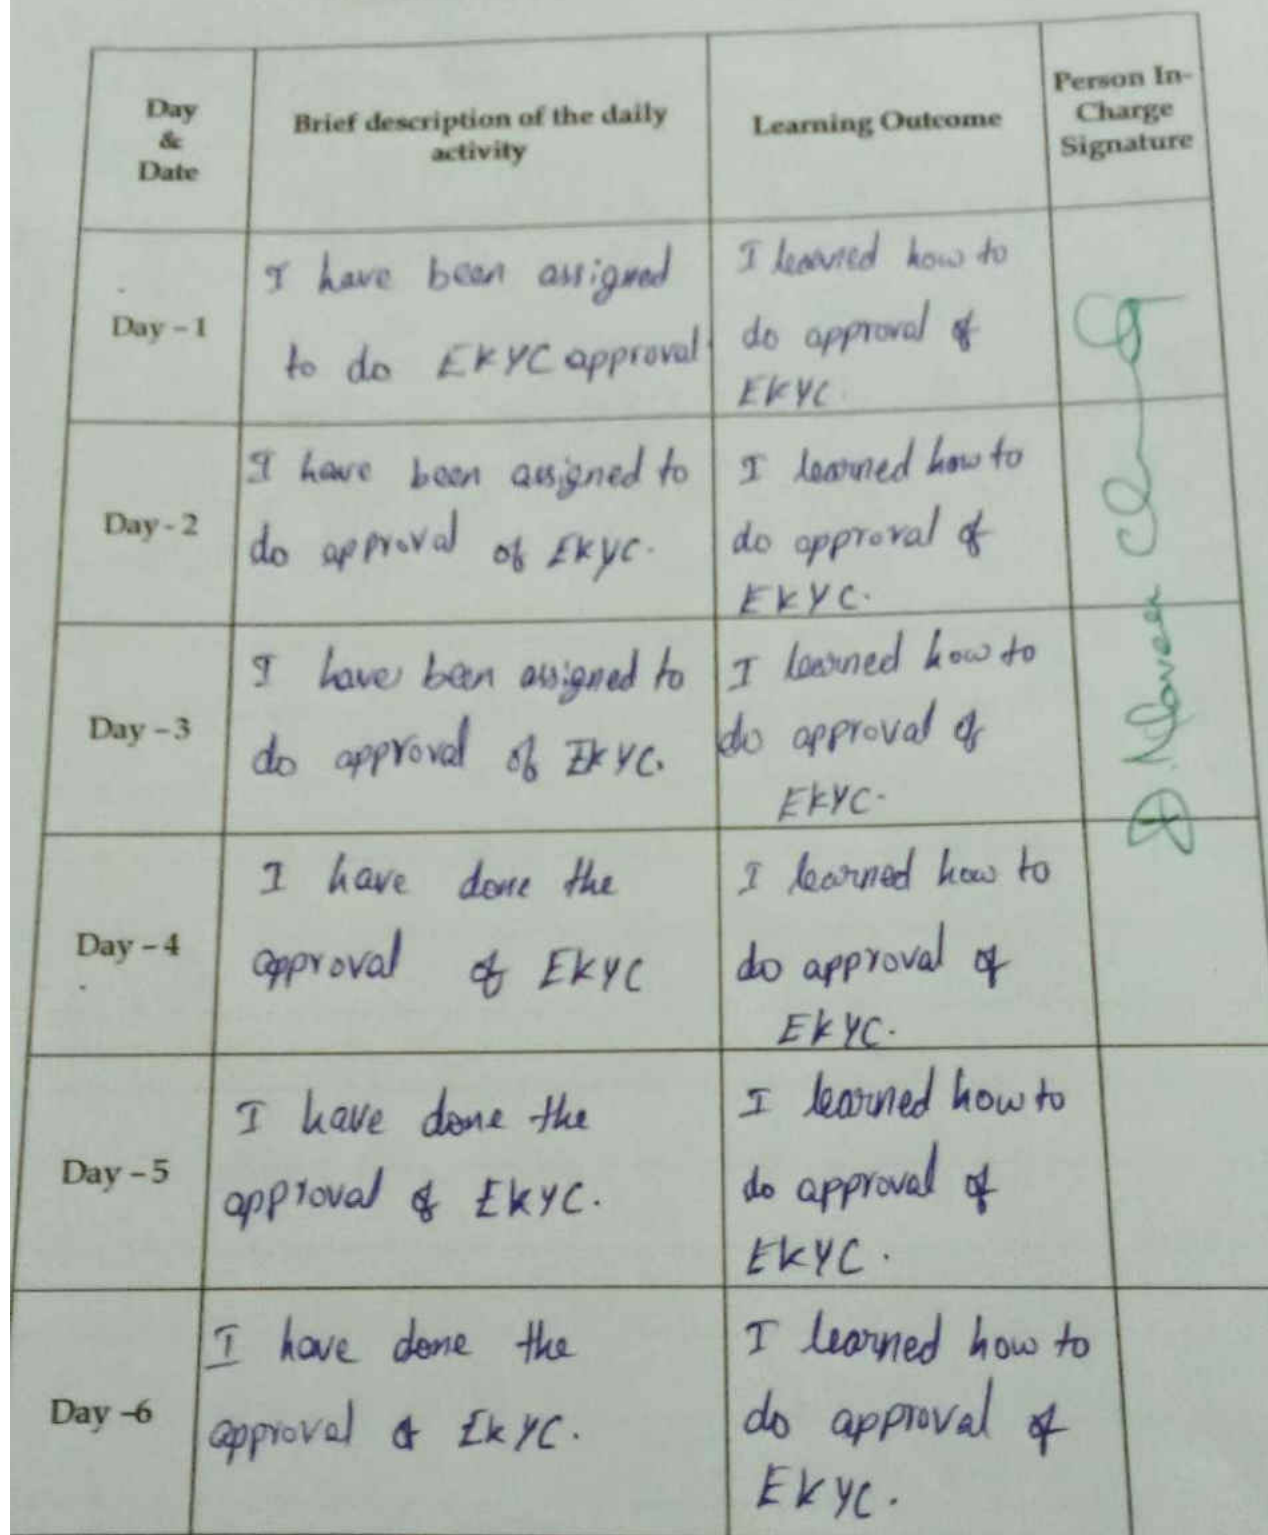 Day
&
Date
Brief description of the daily
activity
Learning Outcome
Person In-
Charge
Signature
Day - 1
I have been assigned
to do EKYC approval
I learned how to
do approval of
EKYC.
Day - 2
I have been assigned to
do approval of EKYC.
I learned how to
do approval of
EKYC.
Day - 3
I have been assigned to
do approval of EKYC.
I learned how to
do approval of
EKYC.
Day - 4
I have done the
approval of EKYC
I learned how to
do approval of
EKYC.
Day - 5
I have done the
approval of EKYC.
I learned how to
do approval of
EKYC.
Day -6
I have done the
approval of EKYC.
I learned how to
do approval of
EKYC.